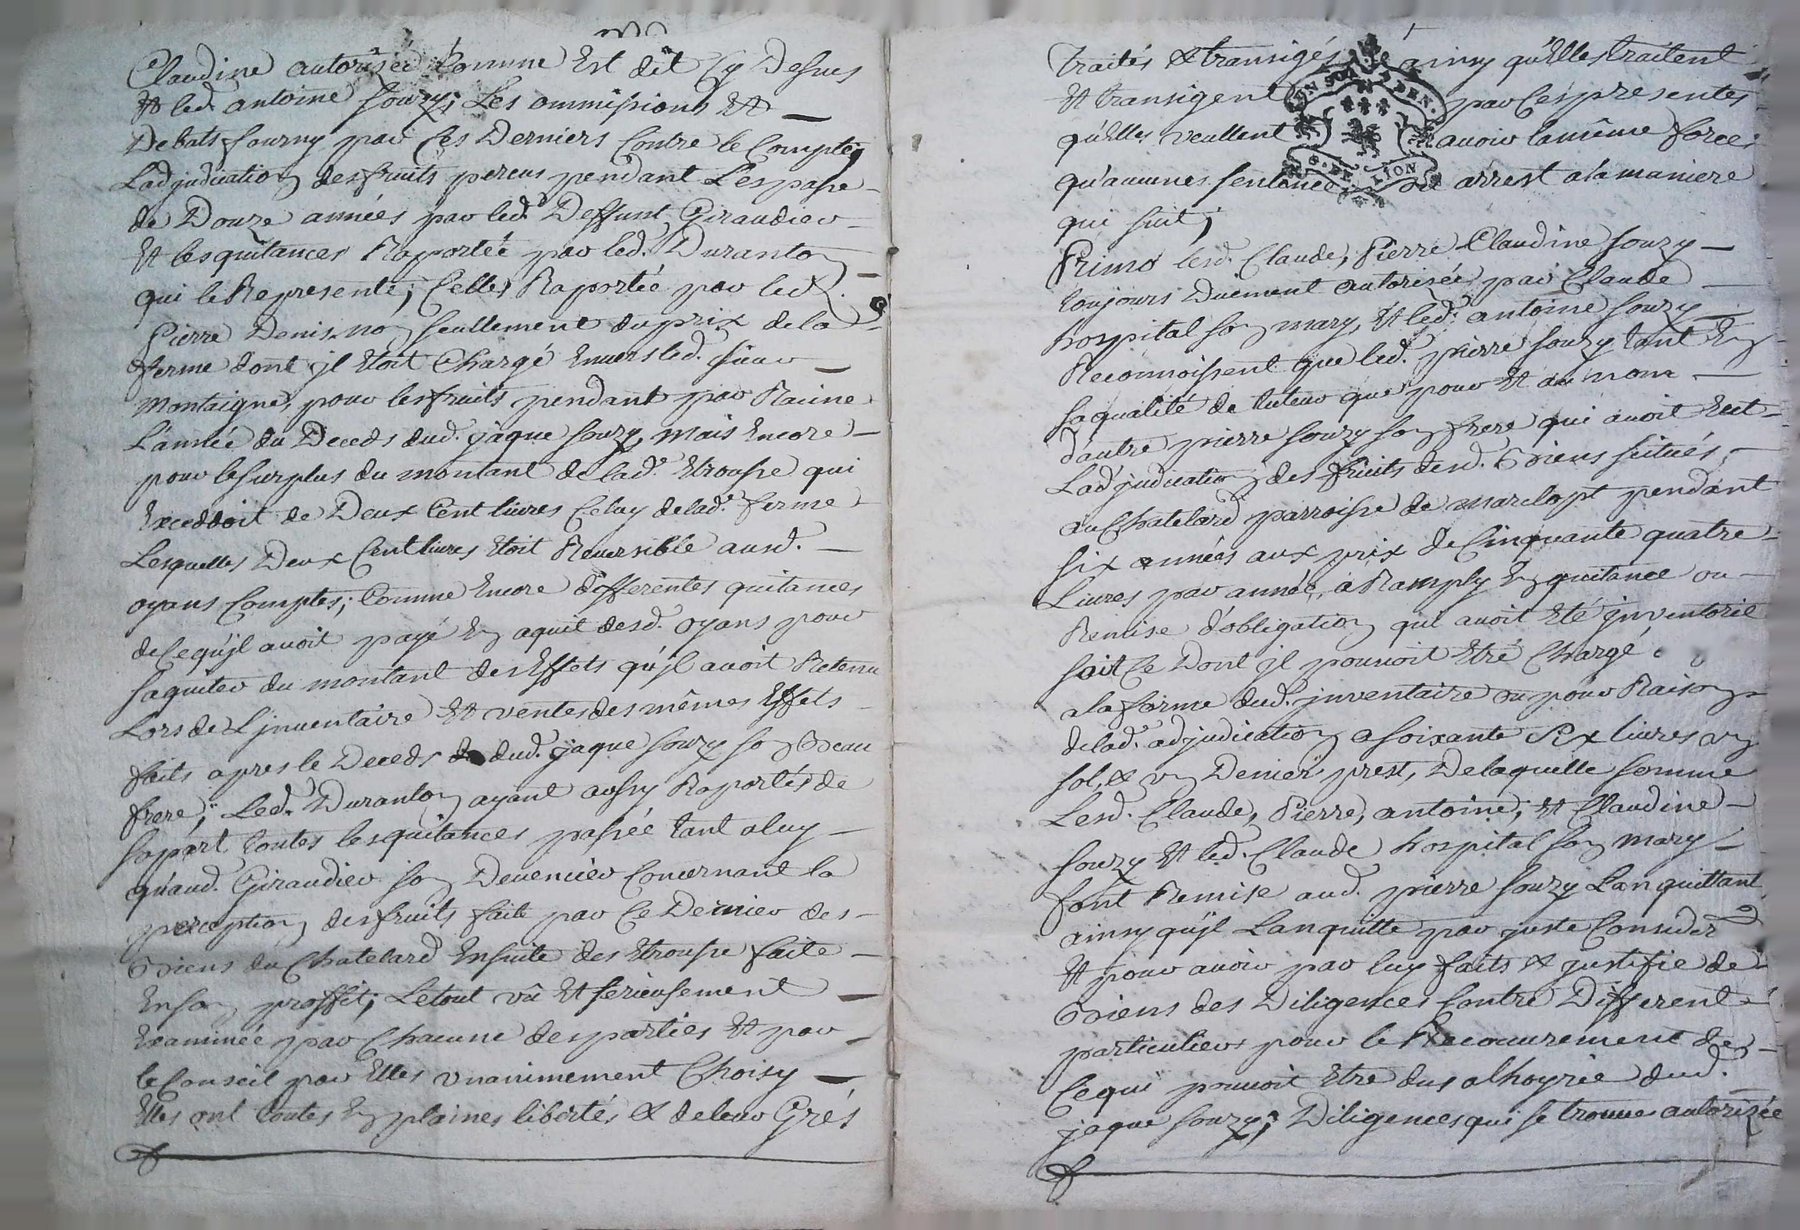 Claudine autorisée Comme Est dit Cy Desues
Et led. antoine souzy; Les ommissions Et
Debats fourny par Ces Derniers Contre le Compte;
L'adjudication des fruits percus pendant L'espasse
de Douze années par led. Deffunt Giraudier
Et les quitances Raportée par led. Duranton
qui le Represente; Celles Raportée par led.
Pierre Denis, non seullement du prix de la
ferme dont jl Etoit Chargé Envers led. sieur
Montaigne, pour les fruits pendant par Racine
L'année du Deceds dud. jaque souzy, mais Encore
pour le surplus du montant de lad.e Etrousse qui
Exceddoit de Deux Cent livres Celuy de lad.e ferme
Lesquelles Deux Cent livres Etoit Reversible ausd.
oyans Comptes; Comme Encore differentes quitances
de Ce qu'jl avoit payé En aquit desd. oyans pour
saquiter du montant des Effets qu'jl avoit Retenu
Lors de L'jnventaire Et ventes des mêmes Effets
faits apres le Deceds dud. jaque souzy son Beau
frere; Led. Duranton ayant aussy Raportés de
sa part toutes les quitances passée tant a luy
qu'aud. Giraudier son Devencier Concernant la
perception des fruits faite par Ce Dernier des
Biens du Chatelard Ensuite des Etrousse faite
En son proffit; Le tout vû Et serieusement
Examinée par Chacune des parties Et par
le Conseil par Elles vnanimement Choisy
Elles ont toutes En plaines libertés & de leur Grés
traités & transigés ainsy qu'Elles traitent
Et transigent par Ces presentes
qu'Elles veullent avoir la même force
qu'aucunes sentence ou arrest a la maniere
qui suit;
GEN.
G. DE LION
Primo lesd. Claude, Pierre Claudine souzy
toujours Duement autorisée par Claude
hospital son mary, Et led. antoine souzy
Reconnoissent que led. pierre souzy tant En
sa qualité de tuteur que pour Et au nom
d'autre pierre souzy son frere qui avoit Eut
L'adjudication des fruits desd. Biens scitués
au Chatelard parroisse de marclopt pendant
six années aux prix de Cinquante quatre
Livres par année, a Ramply En quitance ou
Remise d'obligation qui avoit Eté jnventorié
soit Ce Dont jl pouvoit Etre Chargé
a la forme dud. jnventaire ou pour Raison
de lad.e adjudication a soixante six livres un
sol, & un Denier prest, De laquelle somme
Lesd. Claude, Pierre, antoine, Et Claudine
souzy Et led. Claude hospital son mary
font Remise aud. pierre souzy L'anquittant
ainsy qu'jl L'anquitte par juste Consider
Et pour avoir par luy faits & justifie de
Biens des Diligences Contre Different
particuliers pour le Recouvrement de
Ce qui pouvoit Etre dus a lhoyrie dud.
jaque souzy; Diligences qui se trouves autorizée